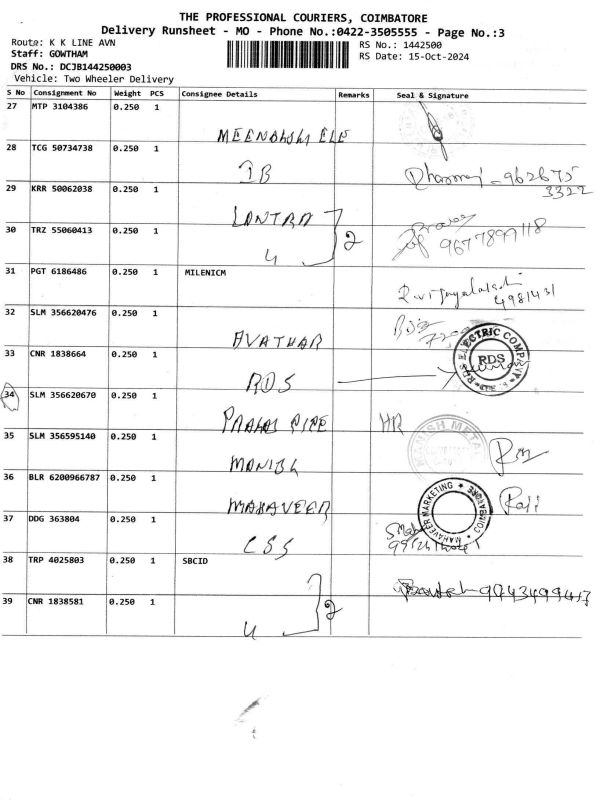 THE PROFESSIONAL COURIERS, COIMBATORE
Delivery Runsheet - MO - Phone No.:0422-3505555 - Page No.:3
Route: K K LINE AVN
RS No.: 1442500
Staff: GOWTHAM
RS Date: 15-Oct-2024
DRS No.: DCJB144250003
Vehicle: Two Wheeler Delivery
S No Consignment No Weight PCS Consignee Details Remarks Seal & Signature
27 MTP 3104386 0.250 1
MEENAKSHI ELE
28 TCG 50734738 0.250 1
IB
Dharmraj - 9626755
3322
29 KRR 50062038 0.250 1
LANTRA
30 TRZ 55060413 0.250 1
4 2
31 PGT 6186486 0.250 1 MILENICM
4981431
32 SLM 356620476 0.250 1
AVATHAR
33 CNR 1838664 0.250 1
RDS
RDS ELECTRIC COMPANY
RDS
34 SLM 356620670 0.250 1
PIPE HR
35 SLM 356595140 0.250 1
MANISH
MANISH METAL
36 BLR 6200966787 0.250 1
MAHAVEER
MAHAVEER MARKETING
COIMBATORE
Raji
37 DDG 363804 0.250 1
CSS
38 TRP 4025803 0.250 1 SBCID
39 CNR 1838581 0.250 1
4 2